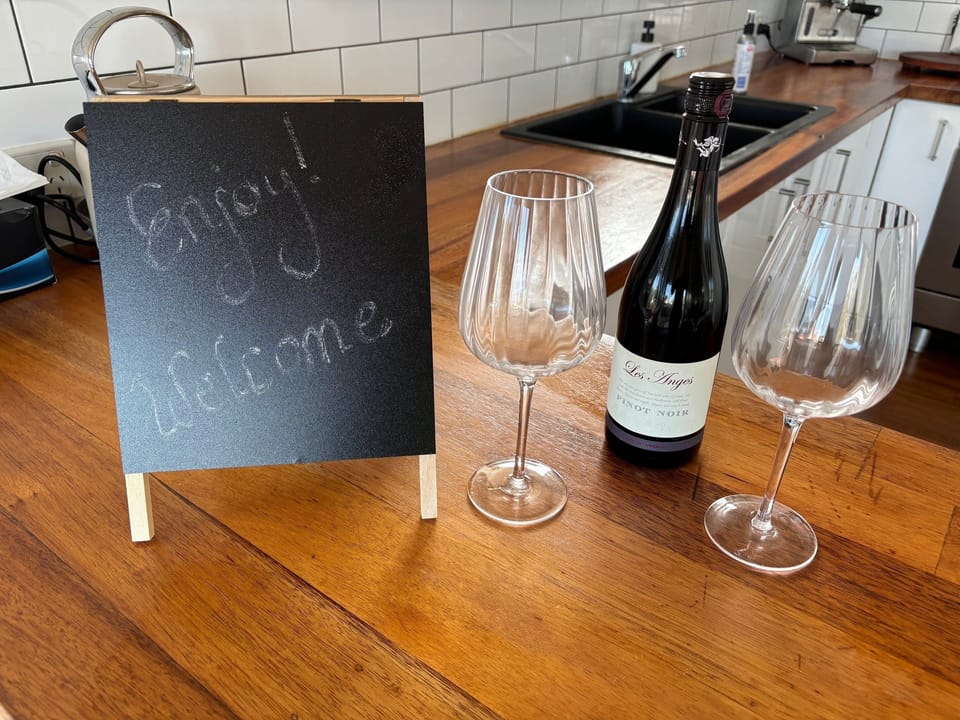 Enjoy!
Welcome
Les Anges
PINOT NOIR